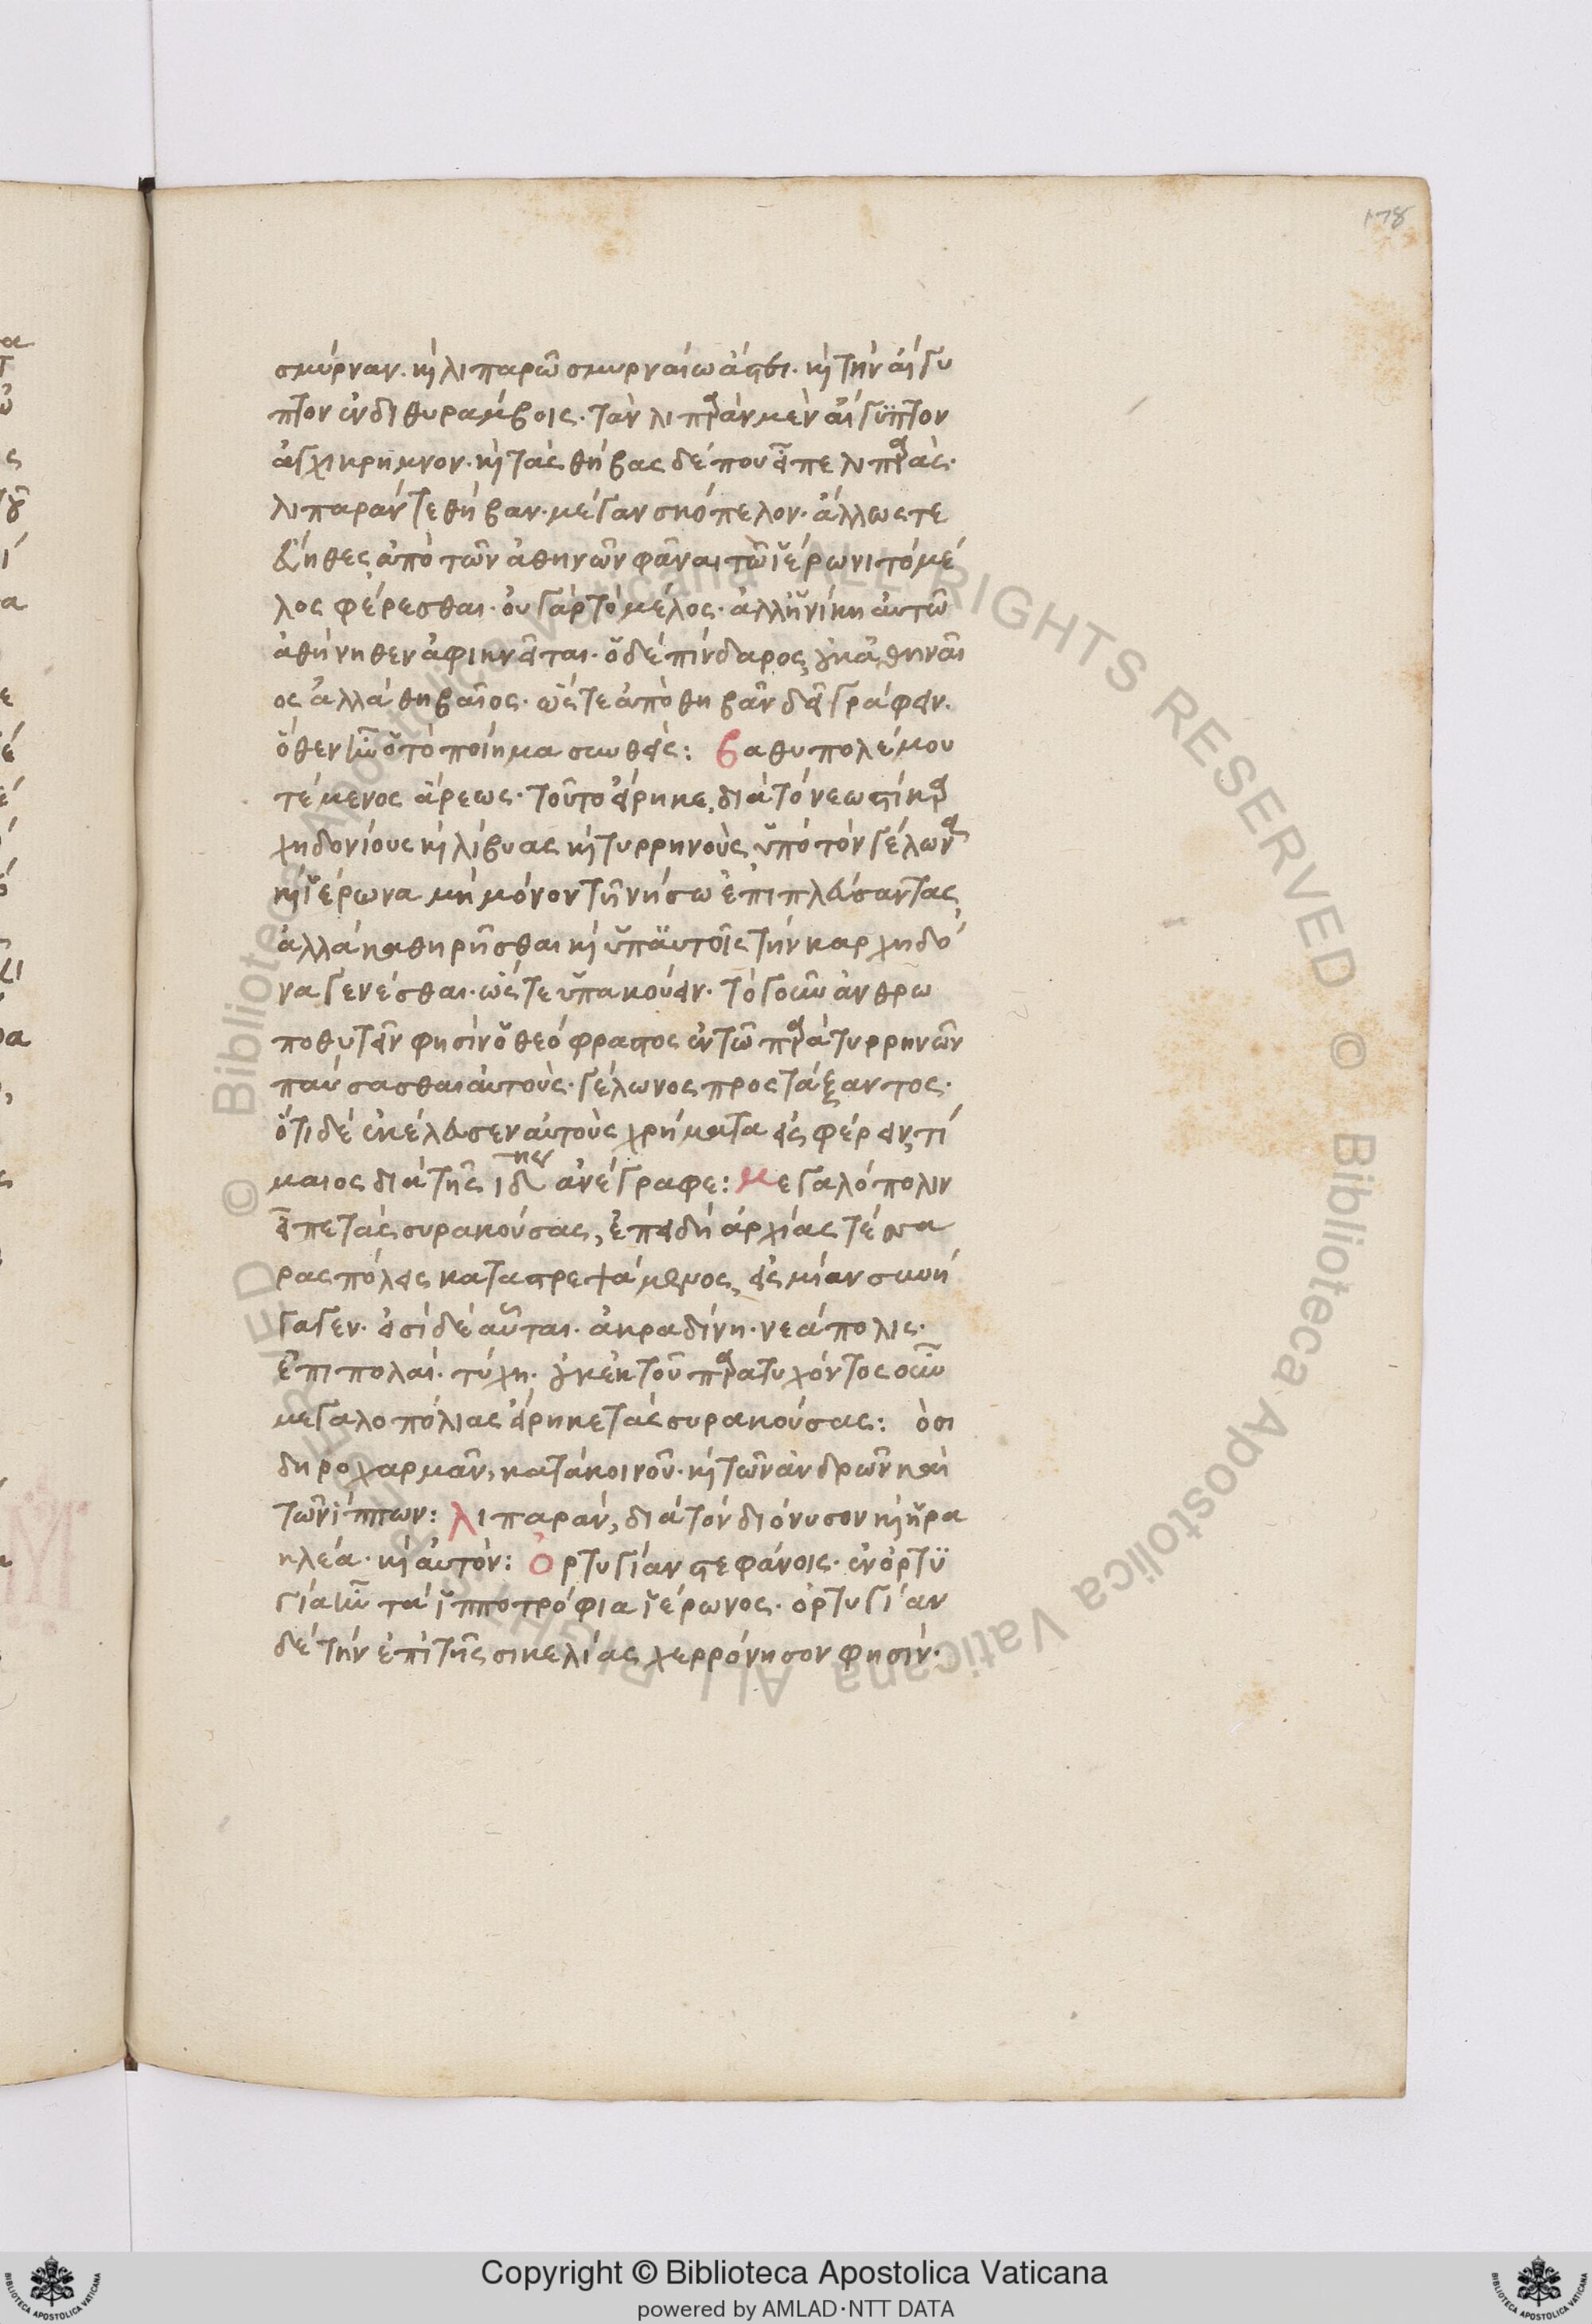 178
σμύρναν. καὶ λιπαρῶ σμυρναίω ἄστει. καὶ τὴν αἴγυ
πτον ἐν διθυράμβοις. τὰν λιπαρὰν μὲν αἴγυπτον
ἀγχίκρημνον. καὶ τὰς θήβας δέ που εἶπε λιπαράς.
λιπαράν τε θήβαν. μέγαν σκόπελον. ἄλλως τε
εὔηθες ἀπὸ τῶν ἀθηνῶν φᾶναι τῶ ἱέρωνι τὸ μέ
λος φέρεσθαι. οὐ γὰρ τὸ μέλος. ἀλλ' ἡ νίκη αὐτῶ
ἀθήνηθεν ἀφικνεῖται. ὁ δὲ πίνδαρος, οὐκ ἀθηναῖ
ος ἀλλὰ θηβαῖος. ὥστε ἀπὸ θηβῶν δεῖ γράφειν.
ὅθεν ἦν ὁ τὸ ποίημα συνθείς: βαθυπολέμου
τέμενος ἄρεως. τοῦτο εἴρηκε, διὰ τὸ νεωστὶ καρ
χηδονίους καὶ λίβυας καὶ τυρρηνοὺς ὑπὸ τὸν γέλωνα
καὶ ἱέρωνα μὴ μόνον τῆ νήσω ἐπιπλεύσαντας,
ἀλλὰ καθηρῆσθαι καὶ ὑπ' αὐτοῖς τὴν καρχηδό
να γενέσθαι. ὥστε ὑπακούειν. τὸ γοῦν ἀνθρω
ποθυτεῖν φησὶν ὁ θεόφραστος ἐν τῶ παρὰ τυρρηνῶν
παύσασθαι αὐτοὺς. γέλωνος προστάξαντος.
ὅτι δὲ ἐκέλευσεν αὐτοὺς χρήματα εἰσφέρειν, τί
μαιος διὰ τῆς ιδ της ἀνέγραφε: μεγαλόπολιν
εἶπε τὰς συρακούσας, ἐπειδὴ ἀρχίας τέσσα
ρας πόλεις καταστρεψάμενος, εἰς μίαν συνή
γαγεν. εἰσὶ δὲ αὗται. ἀκραδίνη. νεάπολις.
ἐπιπολαί. τύχη. οὐκ ἐκ τοῦ παρατυχόντος οὖν
μεγαλοπόλιας εἴρηκε τὰς συρακούσας: ὁ σι
δηροχαρμᾶν, κατὰ κοινοῦ. καὶ τῶν ἀνδρῶν καὶ
τῶν ἵππων: λιπαράν, διὰ τὸν διόνυσον καὶ ἡρα
κλέα. καὶ αὐτόν: ὀρτυγίαν στεφάνοις. ἐν ὀρτυ
γία ἦν τὰ ἱπποτρόφια ἱέρωνος. ὀρτυγίαν
δὲ τὴν ἐπὶ τῆς σικελίας χερρόνησον φησίν.
© Biblioteca Apostolica Vaticana ALL RIGHTS RESERVED
© Biblioteca Apostolica Vaticana ALL RIGHTS RESERVED
Copyright © Biblioteca Apostolica Vaticana
powered by AMLAD·NTT DATA